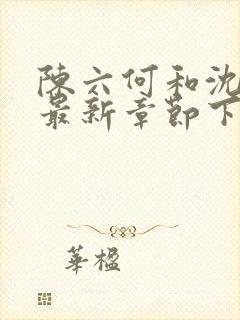 陳六何和沈
最新章節下
華楹